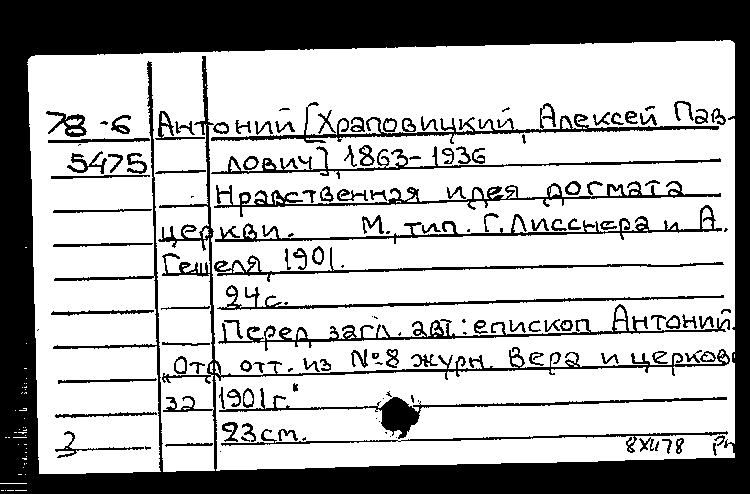 78-6 Антоний [Храповицкий, Алексей Пав-
5475 лович], 1863-1936
Нравственная идея догмата
церкви. М., тип. Г. Лисснера и А.
Гешеля, 1901.
24с.
Перед загл. авт.: епископ Антоний.
„Отд. отт. из №8 журн. Вера и церковь
32 1901г."
3 23см.
8XII78